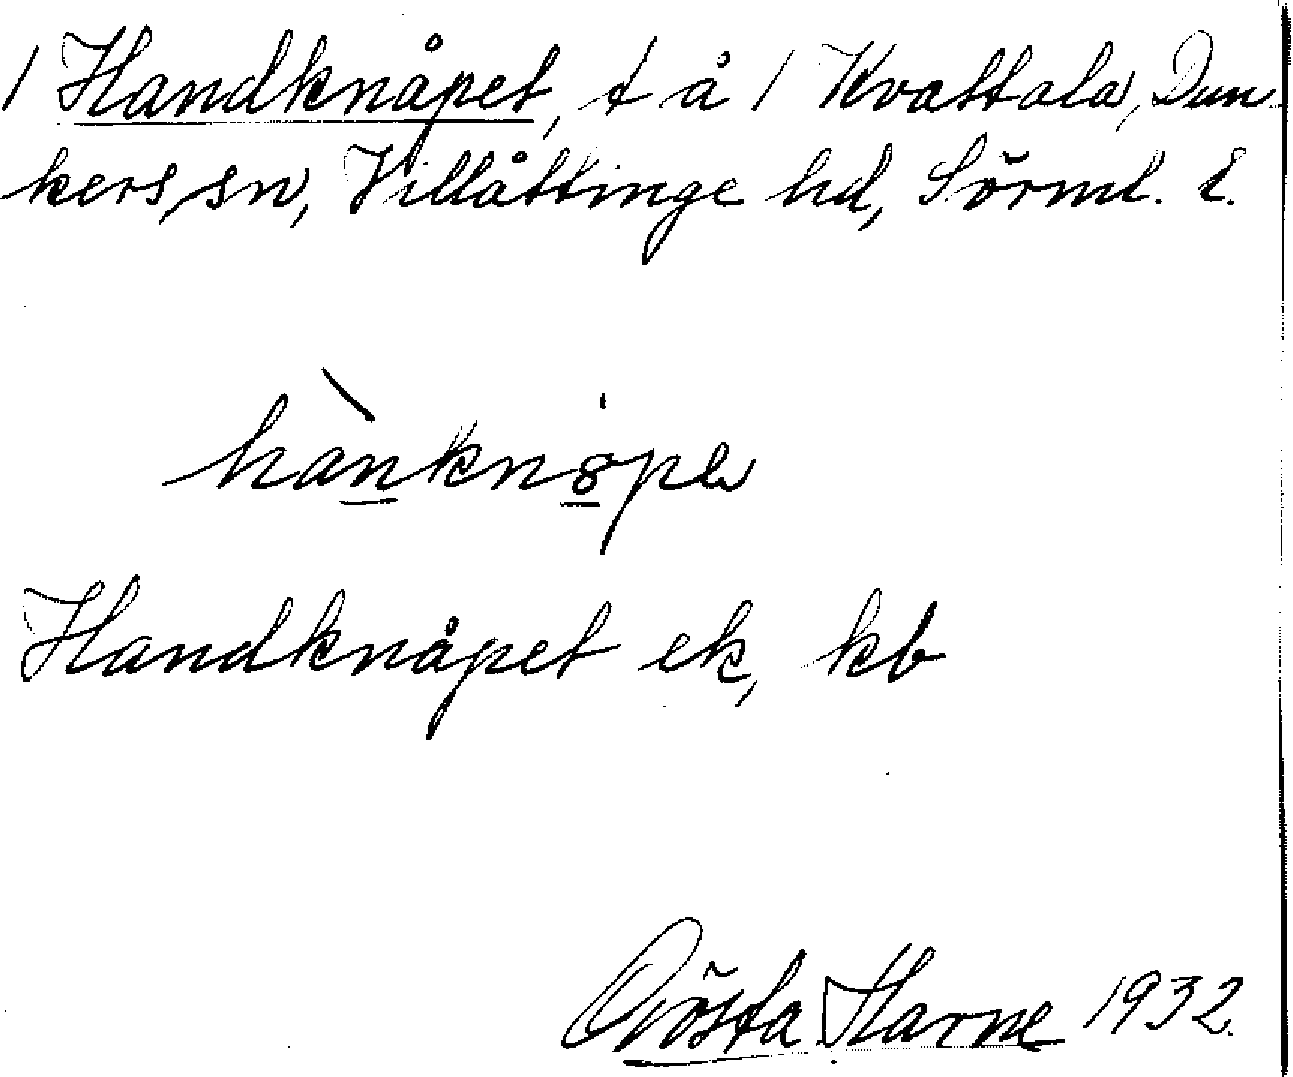 / Handknåpet, t å / Kvattala, Dun
kers, sn, Villåttinge hd, Sörml. l.
hànknøpe
Handknåpet ek, kb
Gösta Harne 1932.